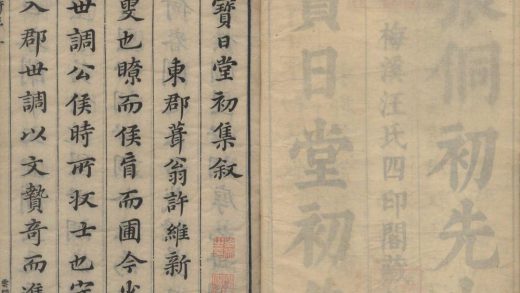 張侗初先
梅溪汪氏四印閣
寶日堂初
寶日堂初集叙
東郡葺翁許維新
叟也瞭而侯盲而圃今
世調公侯時所収士也
入郡世調以文贄奇而進